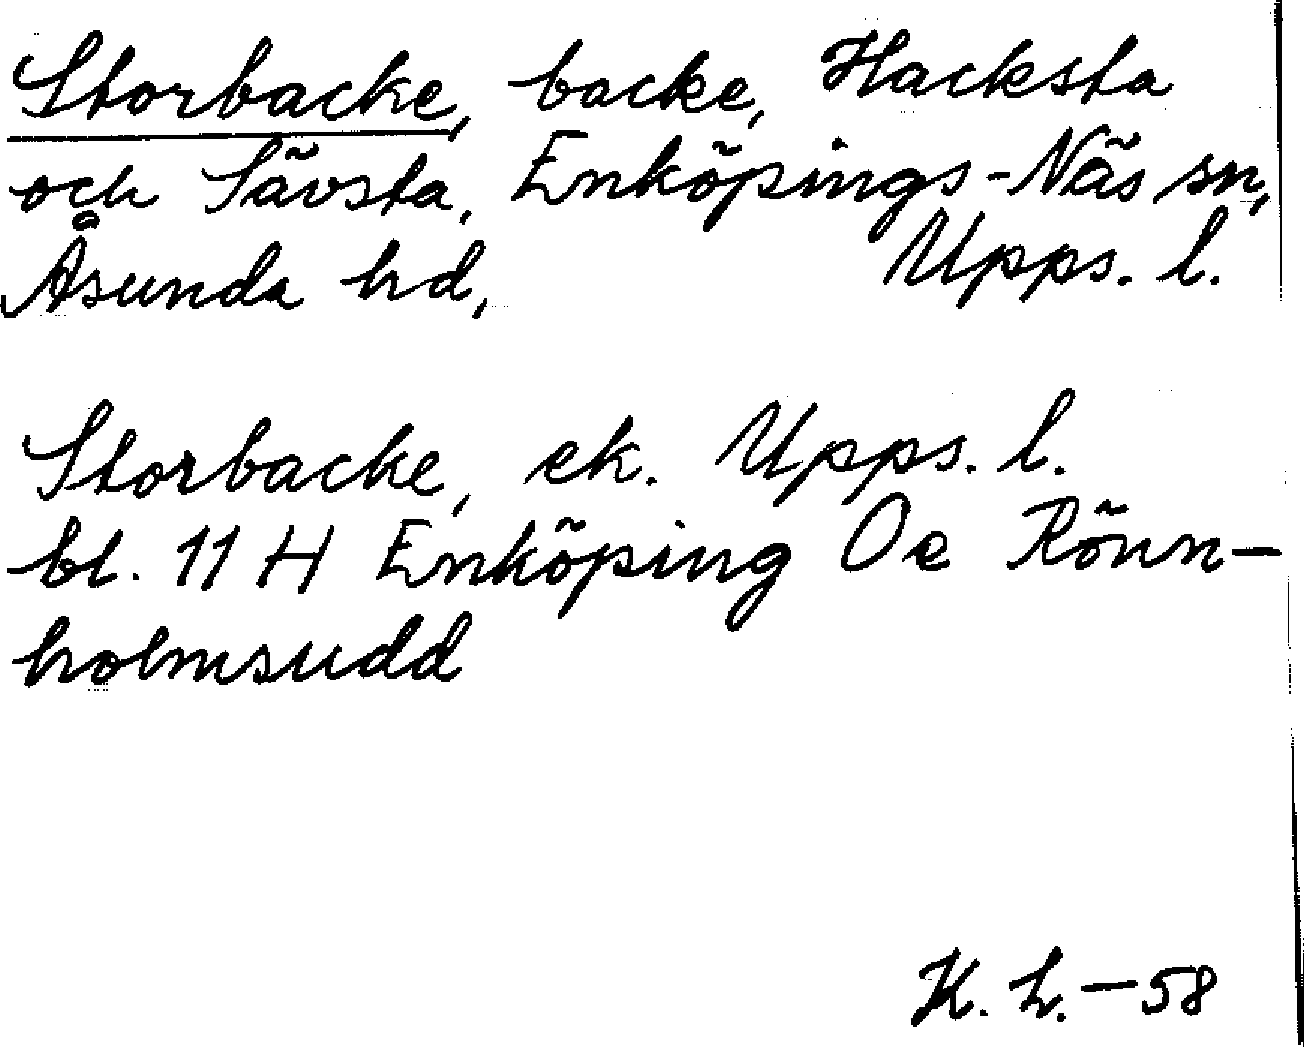 Storbacke, backe, Hacksta
och Sävsta, Enköpings-Näs sn,
Åsunda hd, Upps. l.
Storbacke, ek. Upps. l.
bl. 11 H Enköping Oe Rönn-
holmsudd
K. h. - 58